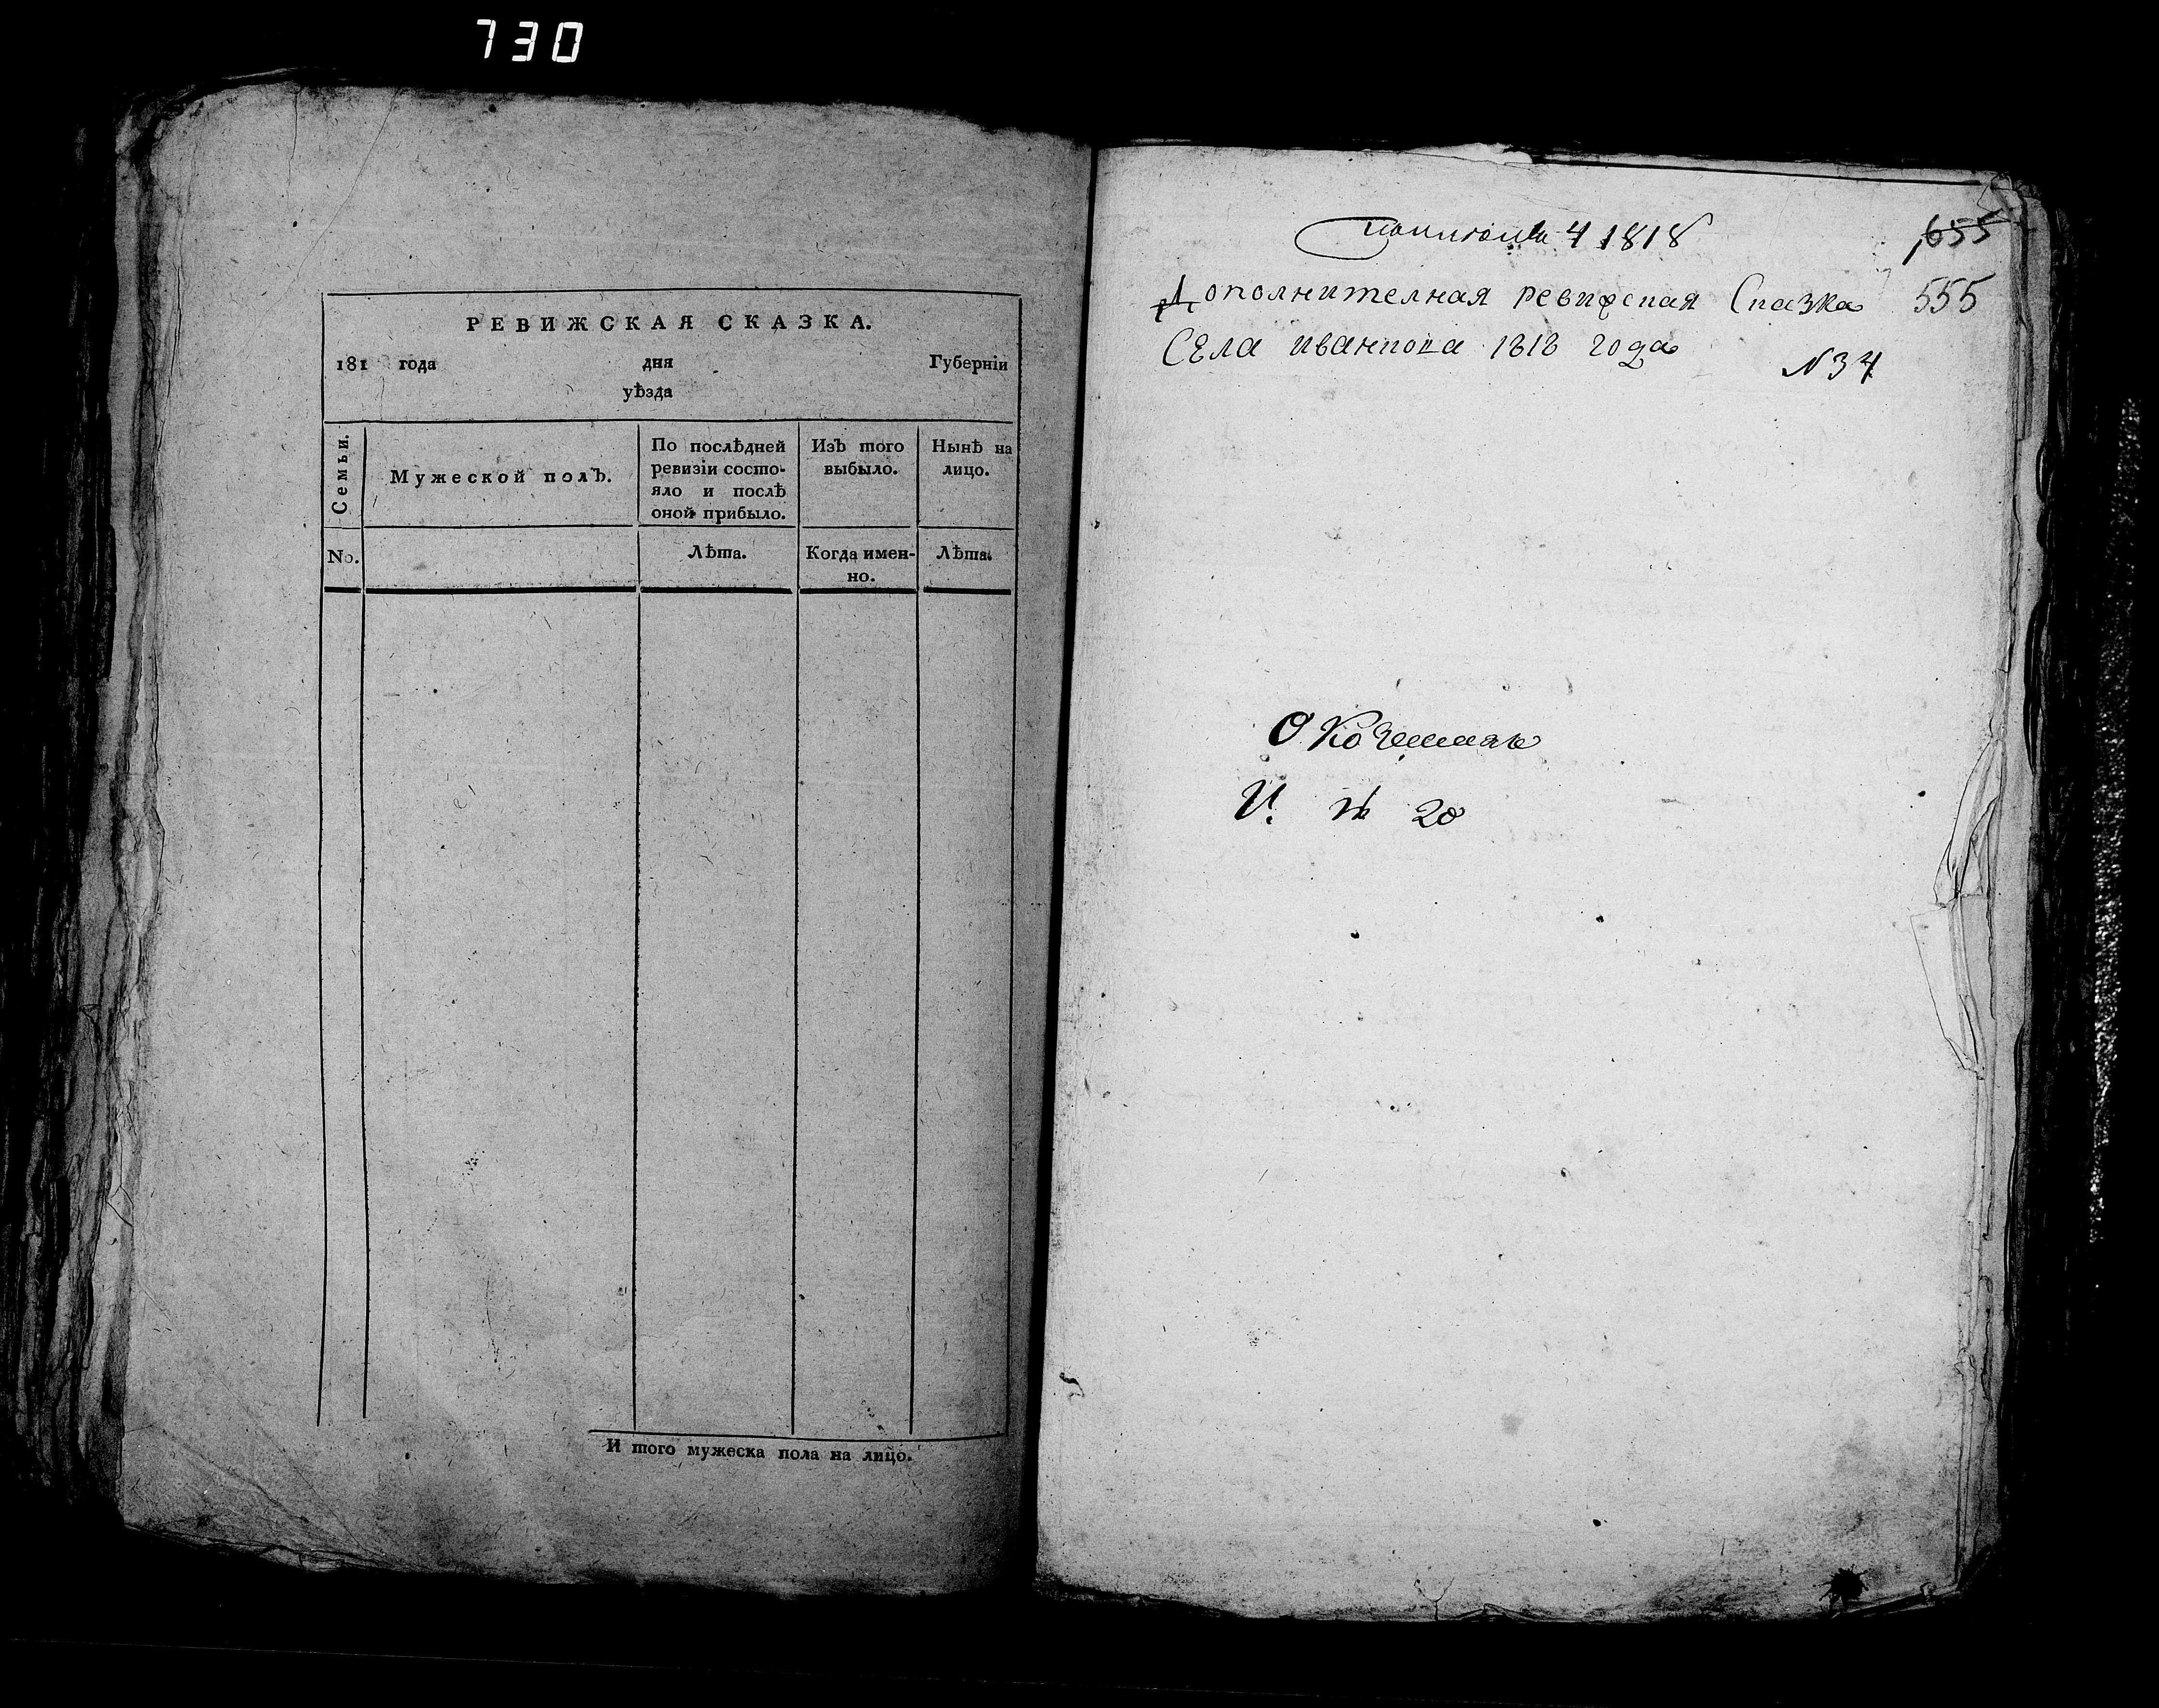 730
РЕВИЖСКАЯ СКАЗКА.
181 года дня Губерніи
уѣзда
Семьи.
Мужеской полъ.
По послѣдней
ревизіи состо-
яло и послѣ
оной прибыло.
Изъ того
выбыло.
Нынѣ на
лицо.
No.
Лѣта.
Когда имен-
но.
Лѣта.
И того мужеска пола на лицо.
4 1818
655
Дополнителная ревиская Сказка 555
Села иванкова 1818 года
N 34
О
20